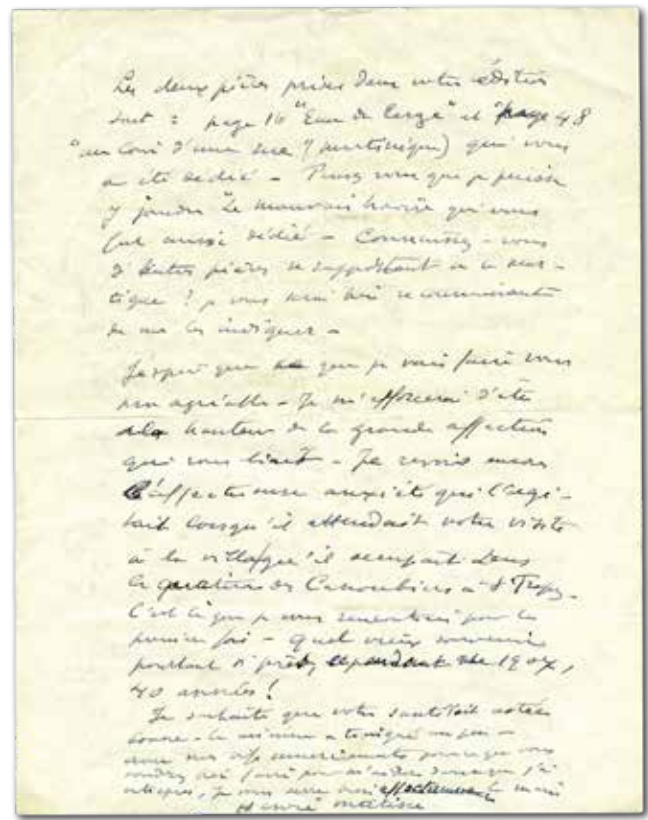 Les deux pièces prises dans votre édition
sont : page 16 "Eau de Cergé" et page 48
"au coin d'une rue (martinique) qui vous
a été dédié - Pensez vous que je puisse
y joindre Le mauvais qui vous
fut aussi dédié - Connaissez-vous
d'autres pièces se rapportant à ce
? je vous serai bien reconnaissant
de me les indiquer -
J'espère que ce que je vais faire vous
sera agréable - Je m'efforcerai d'être
à la hauteur de la grande affection
qui vous liait - Je revois encore
l'affectueuse anxiété qui l'agi-
tait lorsqu'il attendait votre visite
à la villa qu'il occupait dans
le quartier des Canoubiers à St Tropez -
C'est là que je vous rencontrai pour la
première fois - Quel vieux souvenir
pourtant si près, cependant de 1904,
40 années !
Je souhaite que votre santé soit
la mienne a un peu -
avec mes vifs remerciements pour ce que vous
voudrez bien faire pour
je vous serre bien affectueusement la main
Henri Matisse